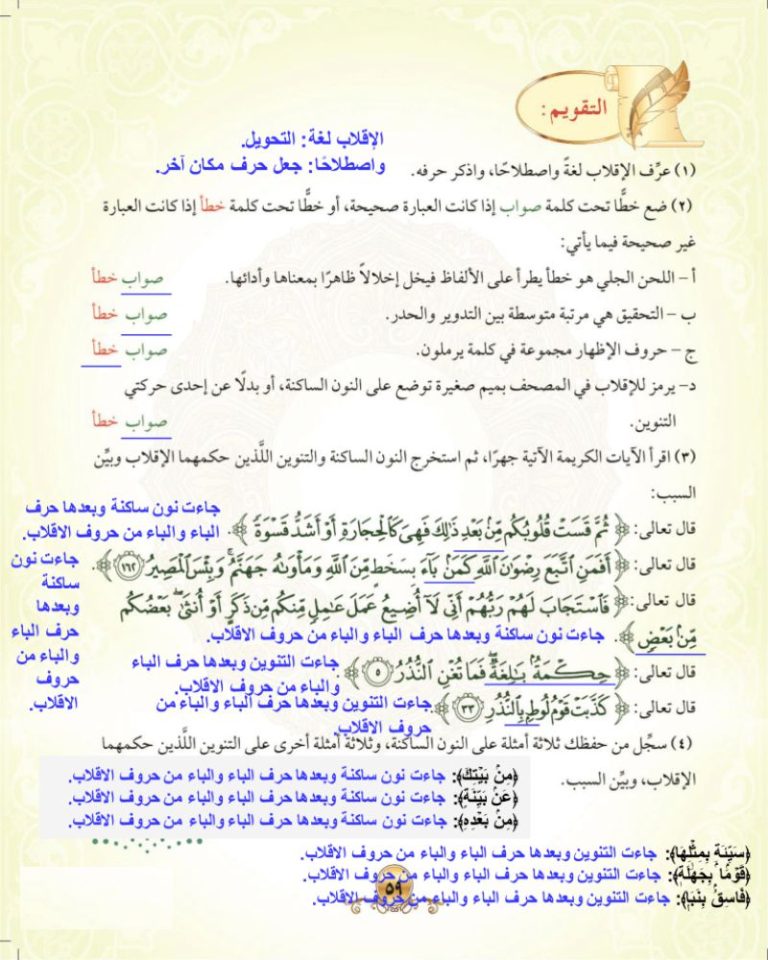 التقويم:
الإقلاب لغة: التحويل.
واصطلاحًا: جعل حرف مكان آخر.
(١) عرِّف الإقلاب لغةً واصطلاحًا، واذكر حرفه.
(٢) ضع خطًّا تحت كلمة صواب إذا كانت العبارة صحيحة، أو خطًّا تحت كلمة خطأ إذا كانت العبارة
غير صحيحة فيما يأتي:
أ – اللحن الجلي هو خطأ يطرأ على الألفاظ فيخل إخلالاً ظاهرًا بمعناها وأدائها. صواب خطأ
ب – التحقيق هي مرتبة متوسطة بين التدوير والحدر. صواب خطأ
ج – حروف الإظهار مجموعة في كلمة يرملون. صواب خطأ
د– يرمز للإقلاب في المصحف بميم صغيرة توضع على النون الساكنة، أو بدلًا عن إحدى حركتي
التنوين. صواب خطأ
(٣) اقرأ الآيات الكريمة الآتية جهرًا، ثم استخرج النون الساكنة والتنوين اللَّذين حكمهما الإقلاب وبيِّن
السبب:
جاءت نون ساكنة وبعدها حرف
الباء والباء من حروف الاقلاب.
قال تعالى: ﴿ ثُمَّ قَسَتْ قُلُوبُكُم مِّنۢ بَعْدِ ذَٰلِكَ فَهِيَ كَالْحِجَارَةِ أَوْ أَشَدُّ قَسْوَةً ﴾.
قال تعالى: ﴿ أَفَمَنِ اتَّبَعَ رِضْوَٰنَ اللَّهِ كَمَنۢ بَآءَ بِسَخَطٍ مِّنَ اللَّهِ وَمَأْوَىٰهُ جَهَنَّمُ ۚ وَبِئْسَ الْمَصِيرُ ١٦٢ ﴾.
جاءت نون
ساكنة
وبعدها
حرف الباء
والباء من
حروف
الاقلاب.
قال تعالى: ﴿ فَاسْتَجَابَ لَهُمْ رَبُّهُمْ أَنِّي لَآ أُضِيعُ عَمَلَ عَٰمِلٍ مِّنكُم مِّن ذَكَرٍ أَوْ أُنثَىٰ ۖ بَعْضُكُم
مِّنۢ بَعْضٍ ﴾. جاءت نون ساكنة وبعدها حرف الباء والباء من حروف الاقلاب.
قال تعالى: ﴿ حِكْمَةٌۢ بَٰلِغَةٌ ۖ فَمَا تُغْنِ النُّذُرُ ٥ ﴾ جاءت التنوين وبعدها حرف الباء
والباء من حروف الاقلاب.
قال تعالى: ﴿ كَذَّبَتْ قَوْمُ لُوطٍۭ بِالنُّذُرِ ٣٣ ﴾. جاءت التنوين وبعدها حرف الباء والباء من
حروف الاقلاب.
(٤) سجِّل من حفظك ثلاثة أمثلة على النون الساكنة، وثلاثة أمثلة أخرى على التنوين اللَّذين حكمهما
الإقلاب، وبيِّن السبب.
﴿مِنۢ بَيْتِكَ﴾: جاءت نون ساكنة وبعدها حرف الباء والباء من حروف الاقلاب.
﴿عَنۢ بَيِّنَةٍ﴾: جاءت نون ساكنة وبعدها حرف الباء والباء من حروف الاقلاب.
﴿مِنۢ بَعْدِهِ﴾: جاءت نون ساكنة وبعدها حرف الباء والباء من حروف الاقلاب.
﴿سَيِّئَةٍۭ بِمِثْلِهَا﴾: جاءت التنوين وبعدها حرف الباء والباء من حروف الاقلاب.
﴿قَوْمًۢا بِجَهَٰلَةٍ﴾: جاءت التنوين وبعدها حرف الباء والباء من حروف الاقلاب.
﴿فَاسِقٌۢ بِنَبَإٍ﴾: جاءت التنوين وبعدها حرف الباء والباء من حروف الاقلاب.
٥٩